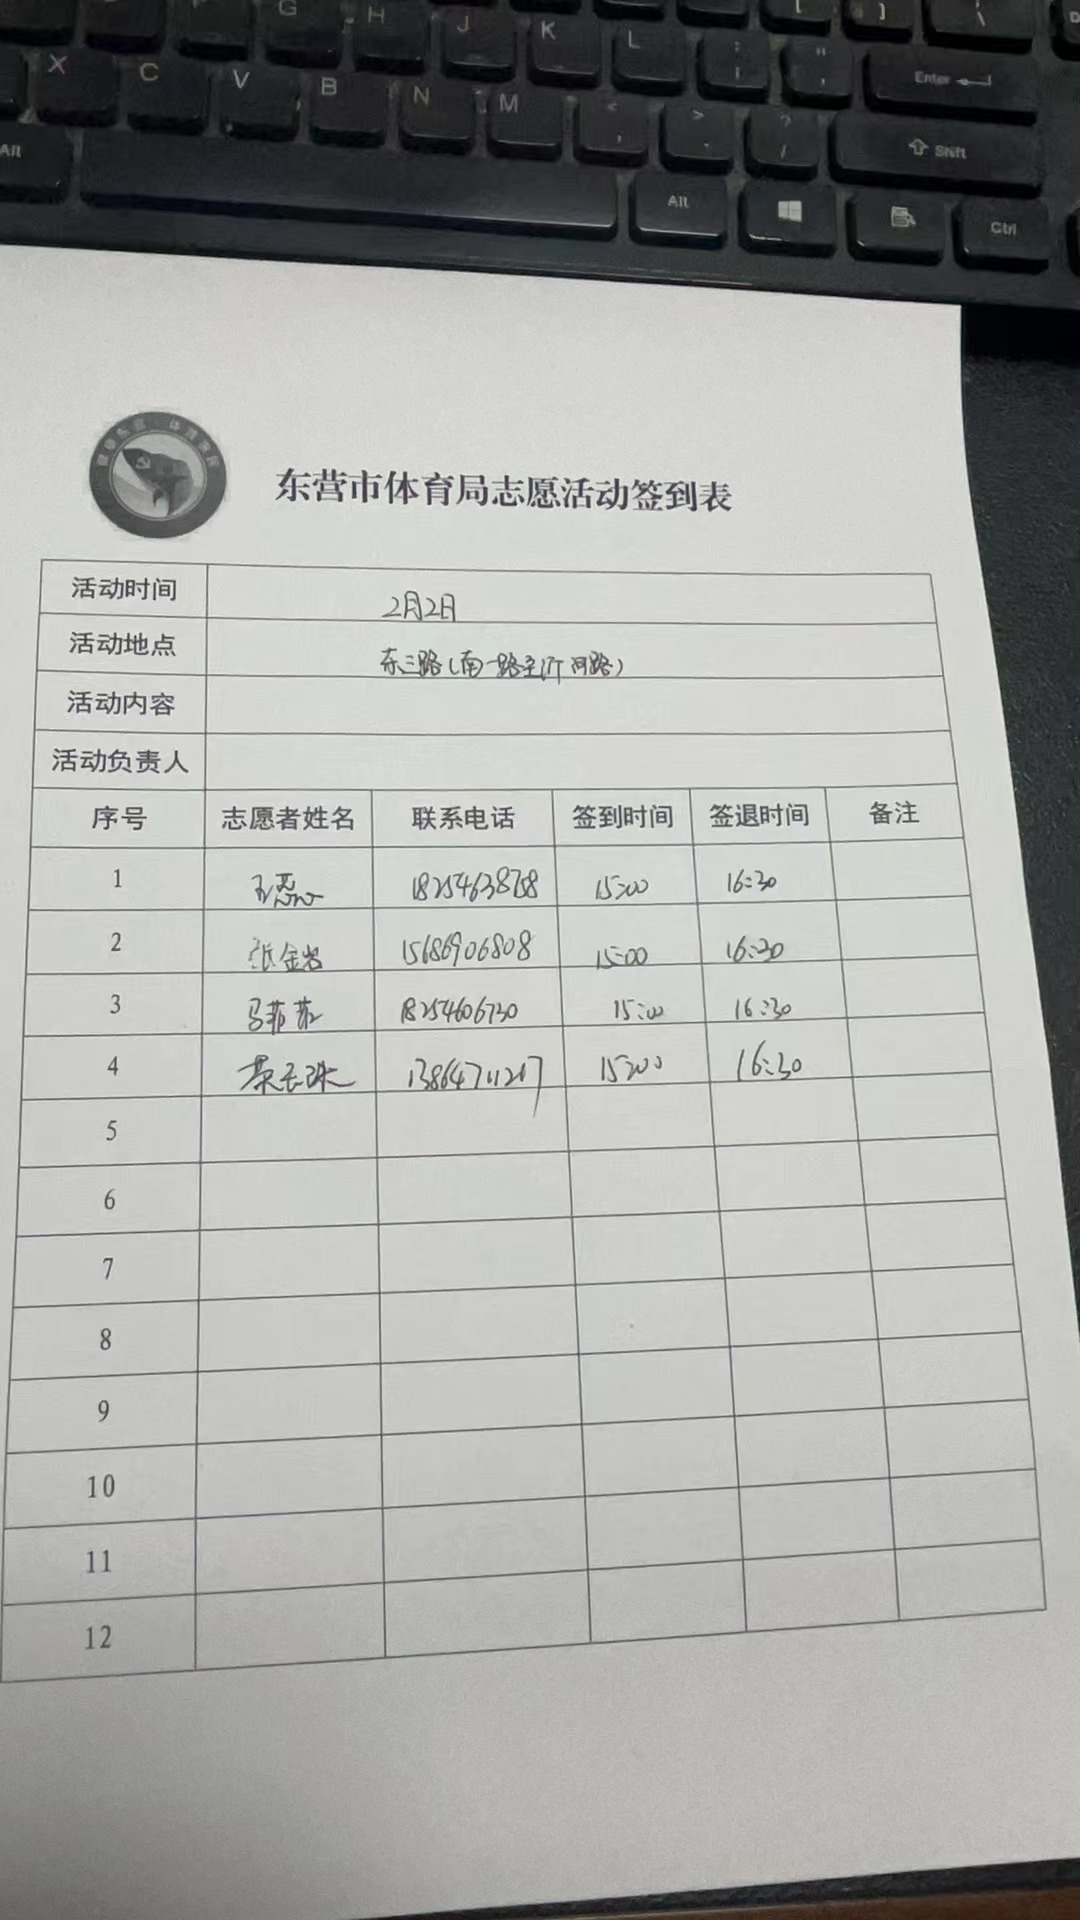 G H J K L : ; " ' [ ] \
Enter
X C V B N M < , > . ? /
Shift
Alt Alt Ctrl
东营市体育局志愿活动签到表
活动时间 2月2日
活动地点 东三路(南一路至沂河路)
活动内容
活动负责人
序号 志愿者姓名 联系电话 签到时间 签退时间 备注
1 18254638758 15:00 16:30
2 张金岩 15686906808 15:00 16:30
3 马菲菲 18254606730 15:00 16:30
4 13864711217 15:00 16:30
5
6
7
8
9
10
11
12